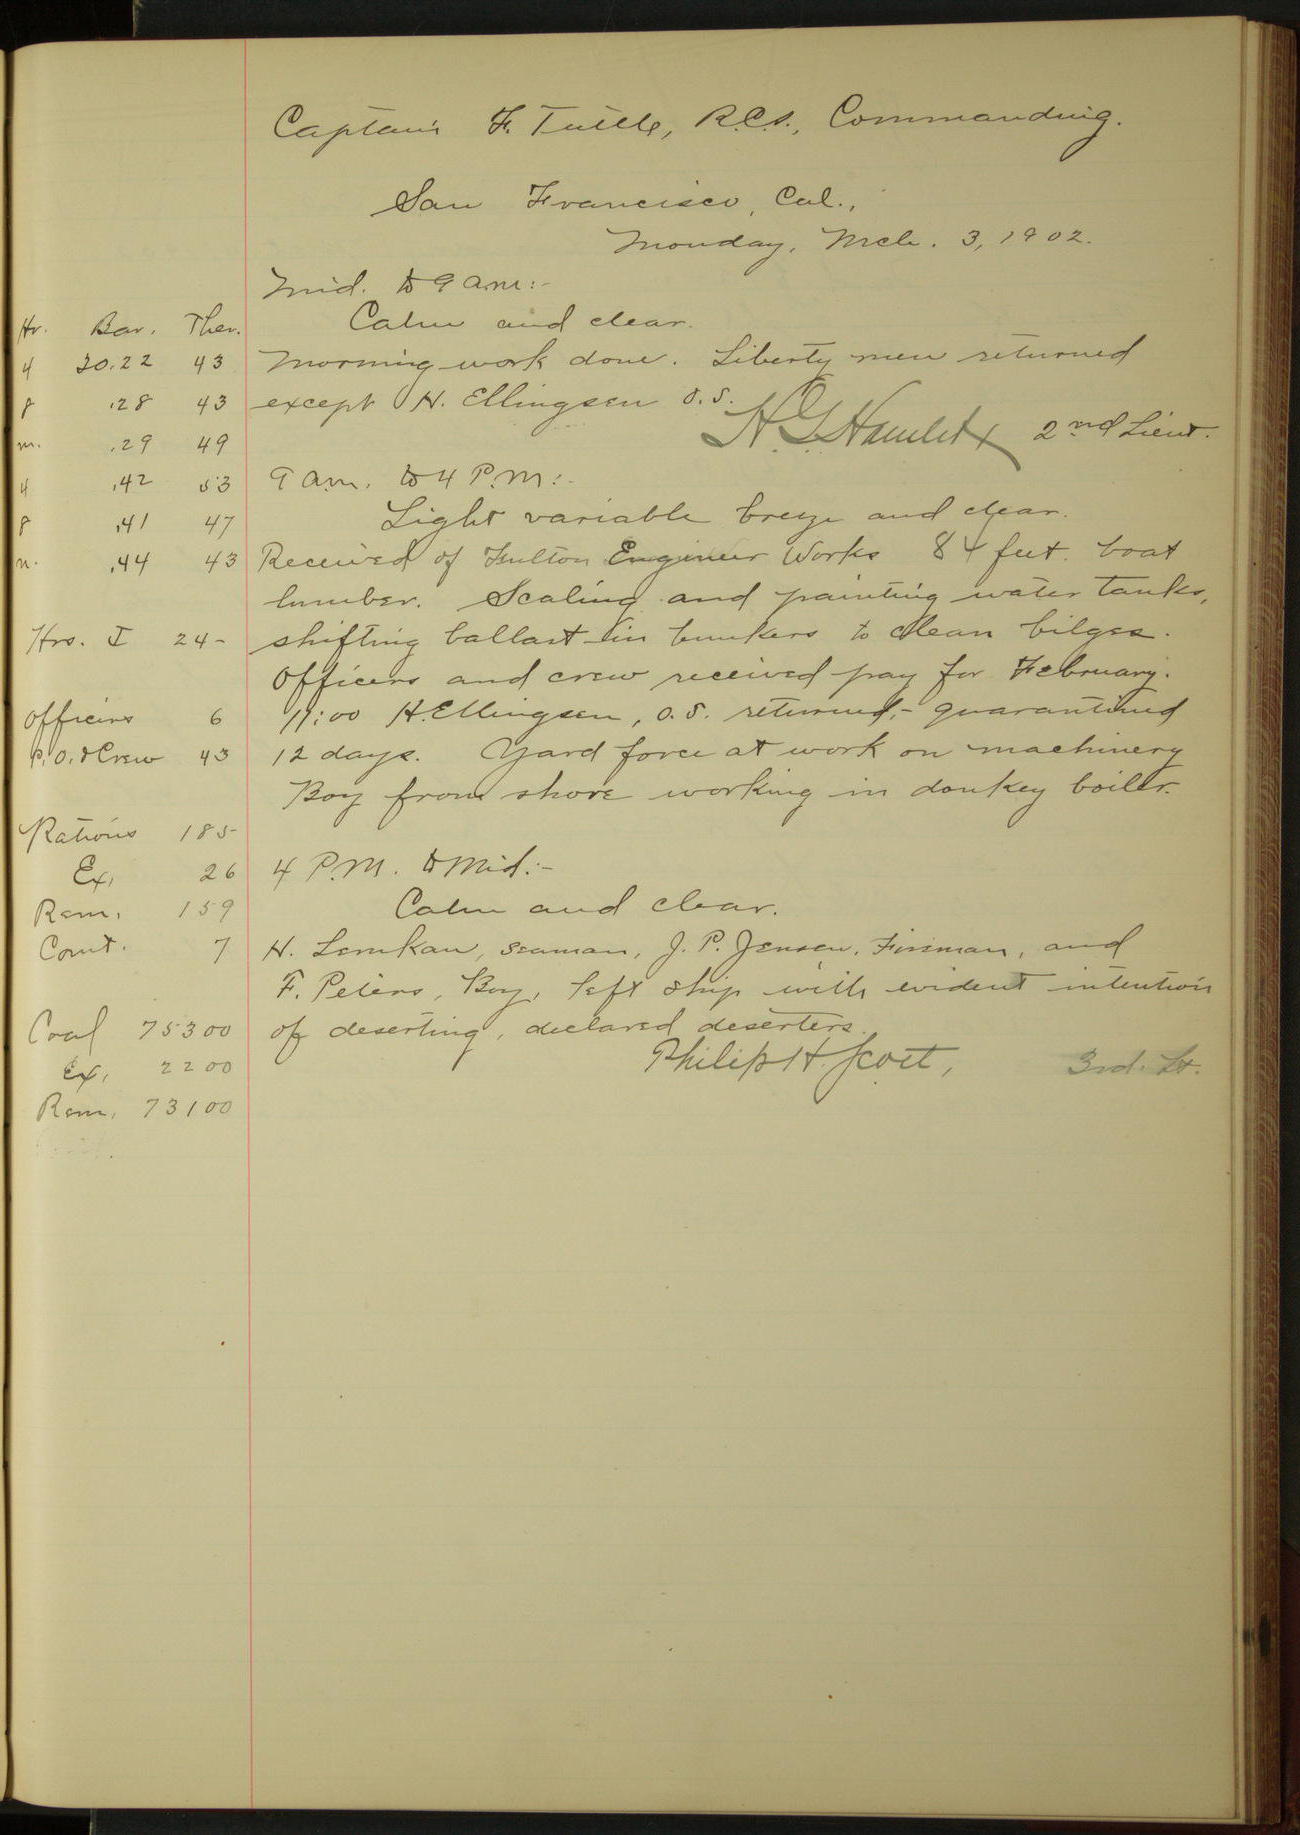 Captain F. Tuttle, R.C.S., Commanding.
San Francisco, Cal.,
Monday, Mch. 3, 1902.
Mid. to 9 a.m:-
Hr. Bar. Ther.
Calm and clear.
4 30.22 43
Morning work done. Liberty men returned
8 .28 43
except H. Ellingsen O.S.
H G Hamlet 2nd Lieut.
m. .29 49
4 .42 53
9 a.m. to 4 P.M:-
8 .41 47
Light variable breeze and clear.
n. .44 43
Received of Fulton Engineer Works 84 feet boat
lumber. Scaling and painting water tanks,
Hrs. I 24-
shifting ballast in bunkers to clean bilges.
Officers and crew received pay for February.
Officers 6
11:00 H. Ellingsen, O.S. returned,- quarantined
P.O. & Crew 43
12 days. Yard force at work on machinery
Boy from shore working in donkey boiler.
Rations 185
Ex. 26
4 P.M. to Mid:-
Rem. 159
Calm and clear.
Comt. 7
H. Lemkau, seaman, J. P. Jensen, Fireman, and
F. Peters, Boy, left ship with evident intention
Coal 75300
of deserting, declared deserters.
Philip H. Scott, 3rd. Lt.
Ex. 2200
Rem. 73100